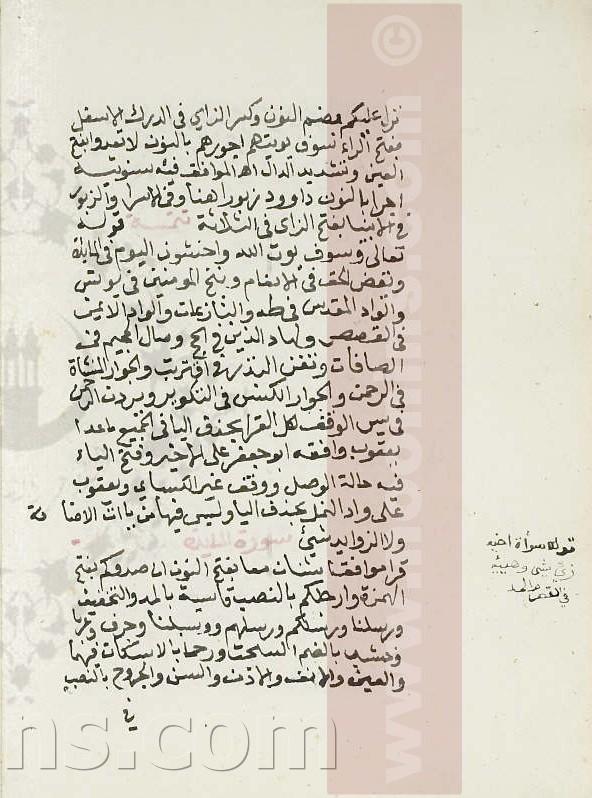 نزل عليكم بضم النون وكسر الزاي في الدرك الاسفل
بفتح الراء سوف نوتيهم اجورهم بالنون لا تعدوا بفتح
العين وتشديد الدال اهـ الموافقة فيه سنوتيه
اجرا بالنون داوود زبورا هنا وفي الاسرا والزبور
في الانبيا بفتح الزاى في الثلاثة تتمة قوله
تعالى وسوف يوت الله واخشون اليوم في المايدة
ونقض الحق في الانعام وننج المومنين في يونس
والواد المقدس في طه والنازعات والواد الايمن
في القصص ولهاد الذين في الحج وصال الجحيم في
الصافات وتغن النذر في اقتربت والجوار المنشاة
في الرحمن والجوار الكنس في التكوير ويردن الرحمن
في يس الوقف لكل القرا بحذف اليا في الجميع ما عدا
يعقوب وافقه ابو جعفر على الاخير وفتح الياء
فيه حالة الوصل ووقف غير الكسياي ويعقوب
على واد النمل بحذف اليا وليس فيها من ياات الاضا فة
ولا الزوايد شئ سورة المايدة
قرا موافقنا شنئات معا بفتح النون ان صدوكم بفتح
الهمزة وارجلكم بالنصب قاسية بالمد والتخفيف
ورسلنا ورسلكم ورسلهم وسبلنا وجرف
وخشب بالضم السحت ورحما بالاسكان فيهما
والعين والانف والاذن والسن والجروح بالنصب
في
قوله سوأة اخيه
شي وهيئة
في
www.noonins.com
ns.com
©